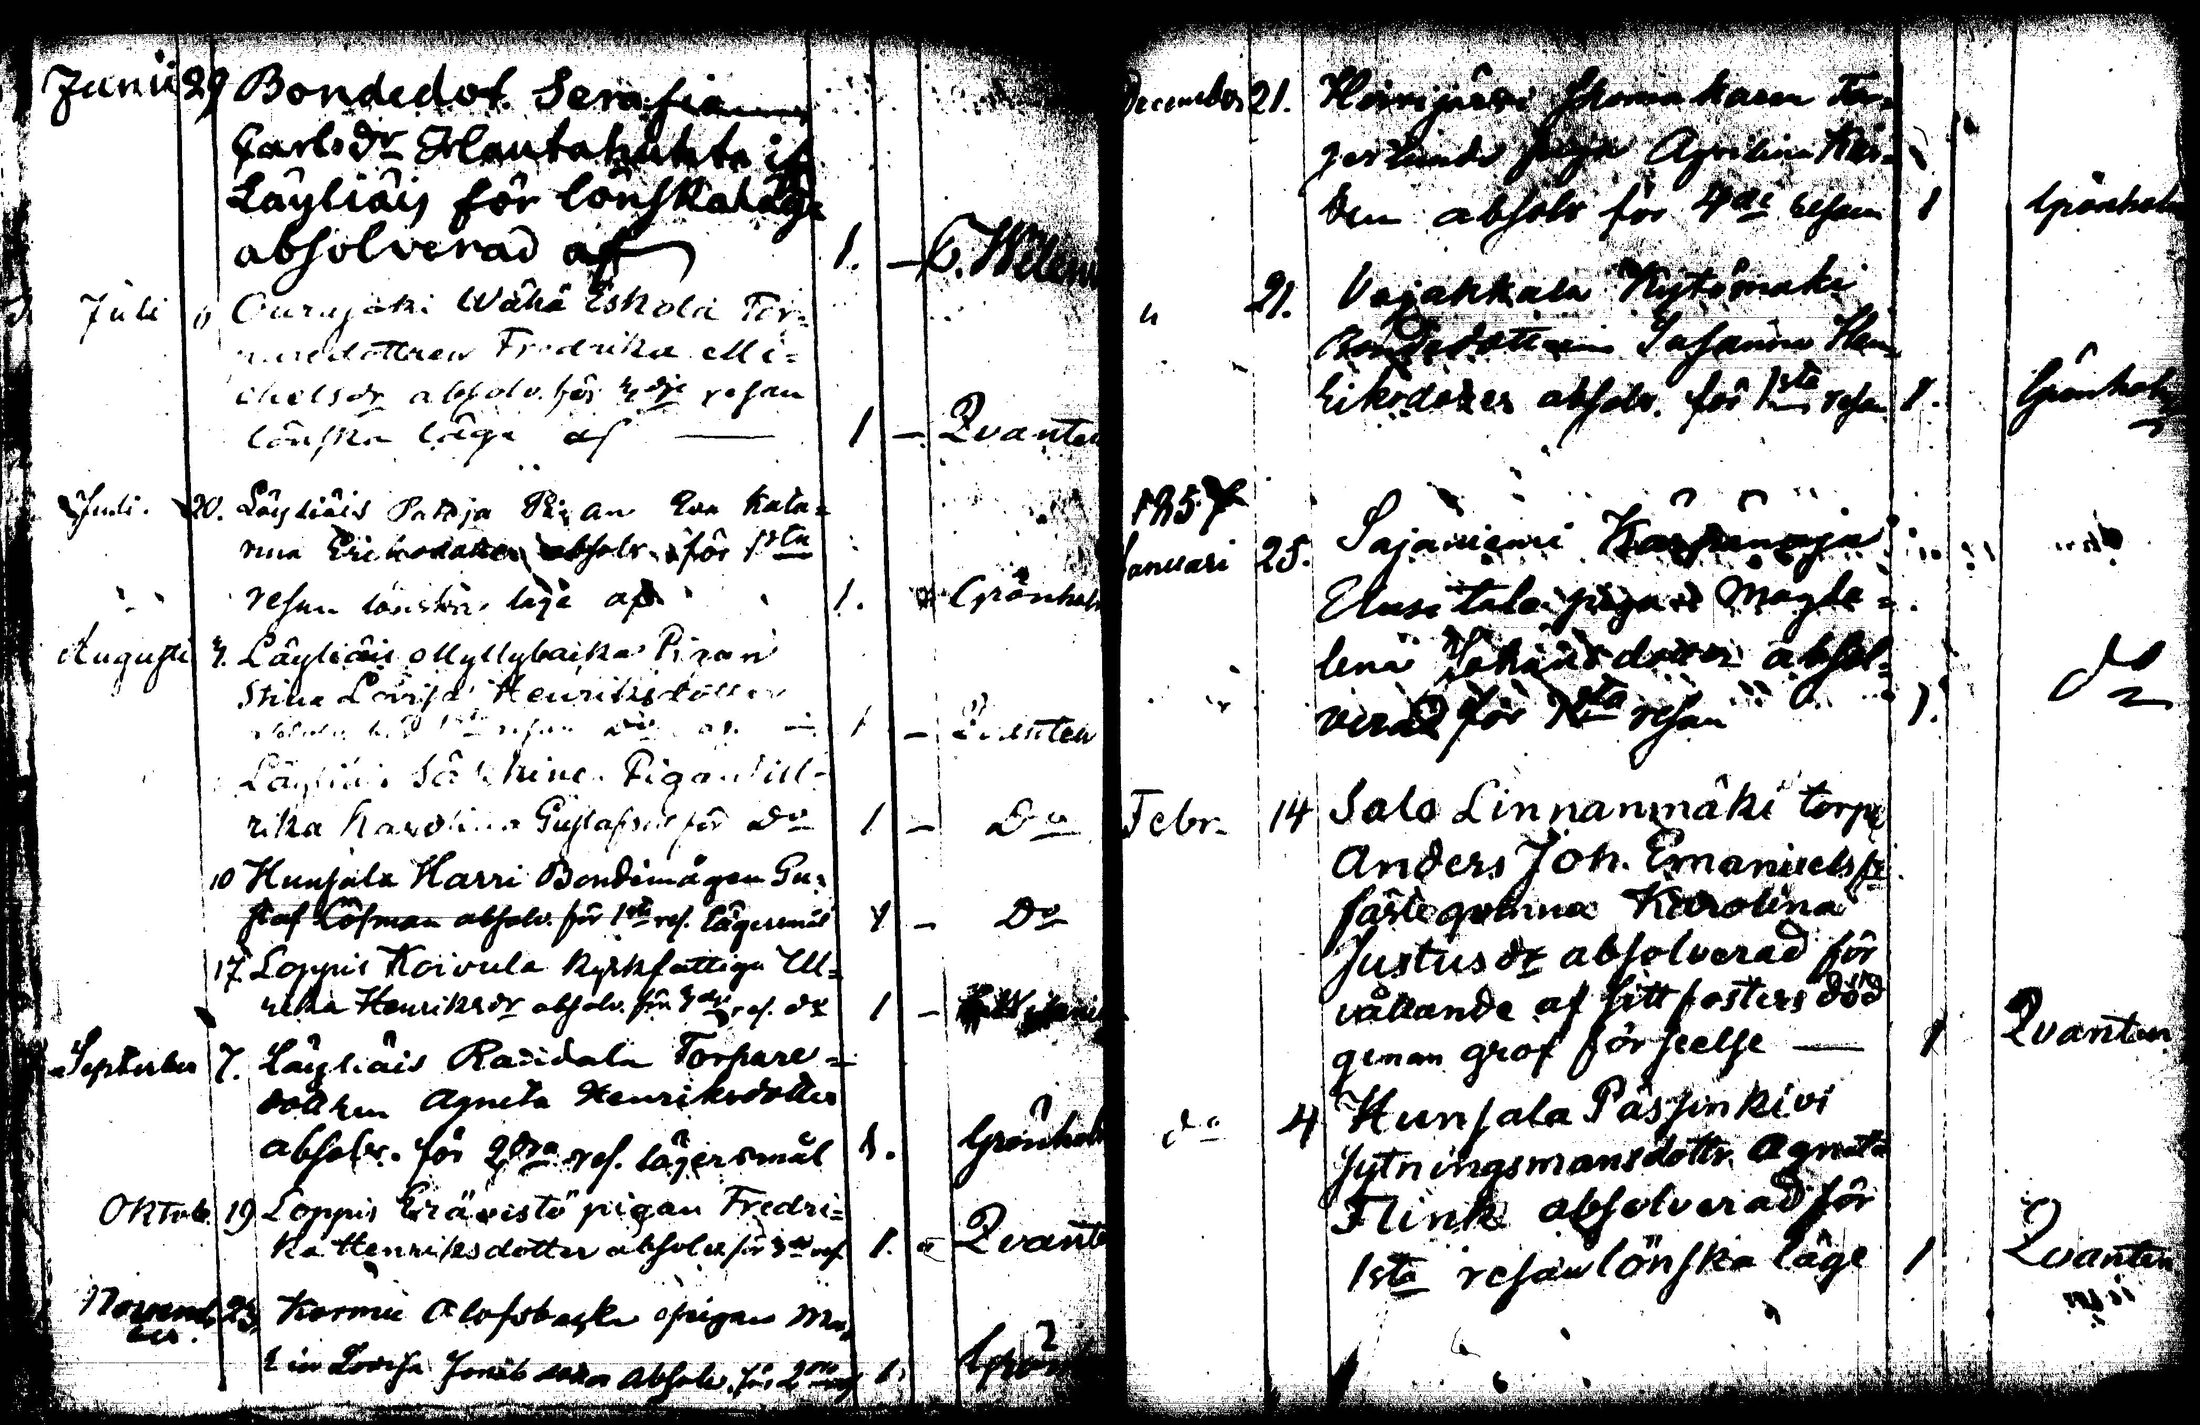 Junii 29 Bondedot. Serafia
Carlsdr Hautahuhta
Läyliäis för lönskaläge
absolverad af 1. — C. Wileni
Juli Ourajoki Wähä Eskola Tor-
paredottren Fredrika Mi-
chelsdr absolv. för 3dje resan
lönska läge af — 1 — Qvanten
Juli. 20. Läyliäis Pataja Pigan Eva Kata-
rina Eriksdotter absolv. för 1sta
resan lönska läge af 1. Grönholm
Augusti 3. Läyliäis Myllybacka Pigan
Stina Lovisa Henriksdotter
1 — Qvanten
Läyliäis Pigan Ull-
rika Karolina Gustafsdr för Do 1 — Do
10 Hunsala Harri Bondemågen Gu-
staf Löfman absolv. för 1sta res. lägersmål 1 — Do
17. Loppis Koivula kyrkfattiga Ul-
rika Henriksdr absolv. för res. do 1 —
September 7. Läyliäis Raudala Torpare-
dottren Agneta Henriksdotter
absolv. för 2dra res. lägersmål 1. Grönholm
Oktob. 19 Loppis Erävistö pigan Fredri-
ka Henriksdotter absolv för 3de res 1. Qvanten
Novemb
ber. 23. Kormu Olofsbacka pigan Ma-
Lovisa absolv. för 2dra res 1. Grönholm
December 21. Hirvijärvi Skomakaren Tör-
Aprilina
den absolv för 4de resan 1 Grönholm
" 21. Vojakkala Kytömäki
Bondedottern Susanna Hen-
riksdotter absolv. för 1sta resan 1. Grönholm
1857
Januari 25. Sajaniemi
Uusitalo pigan Magda-
lena Johansdotter absol-
verad för 1sta resan 1. do
Febr. 14 Salo Linnanmäki torp.
Anders Joh. Emanuelss
fästeqvinna Karolina
Justusdr absolverad för
vållande af sitt fosters död
genom grof förseelse — 1 Qvanten
do 4 Hunsala Pässinkivi
sytningsmansdottr. Agneta
Flink absolverad för
1sta resan lönska läge 1 Qvanten